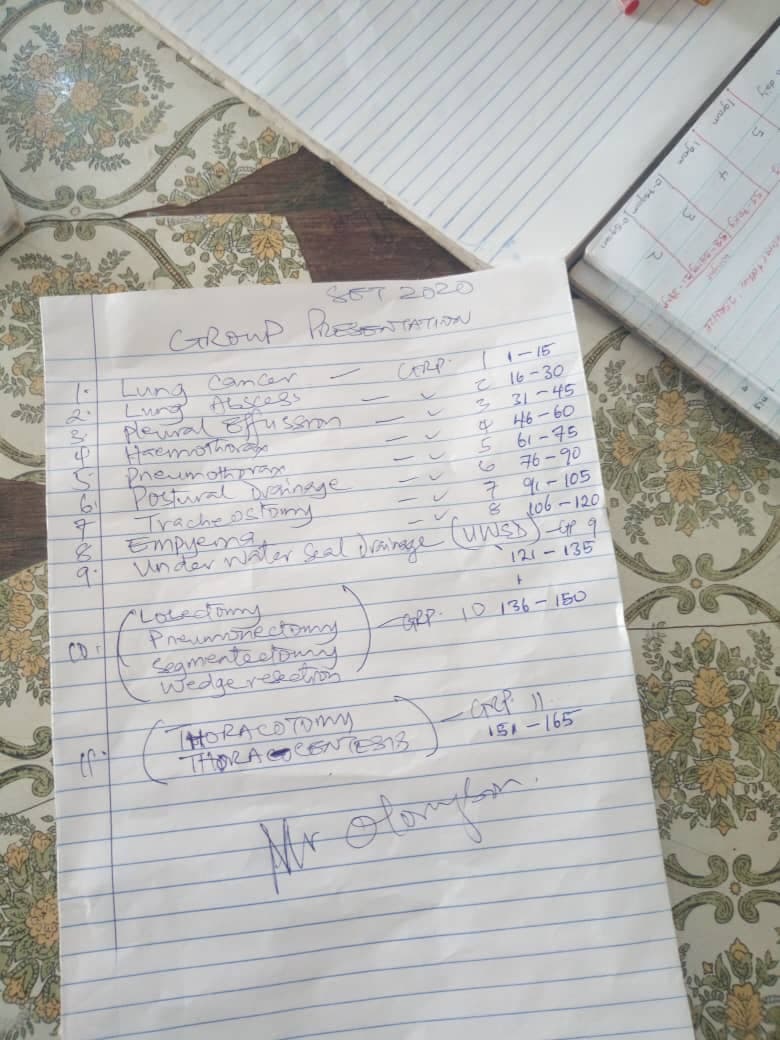 SET 2020
GROUP PRESENTATION
1. Lung Cancer — GRP. 1 1-15
2. Lung Abscess — " 2 16-30
3. Pleural Effussion — " 3 31-45
4 Haemothorax — " 4 46-60
5 Pneumothorax — " 5 61-75
6. Postural Drainage — " 6 76-90
7 Tracheostomy — " 7 91-105
8 Empyema — " 8 106-120
9. Under Water Seal Drainage (UWSD) - GP 9
121-135
10. (Lobectomy
Pneumonectomy
Segmentectomy
Wedge resection) — GRP. 10 136-150
11. (THORACOTOMY
THORACOCENTESIS) — GRP. 11.
151-165
Mr
1gram
5
1gram
4
3
2